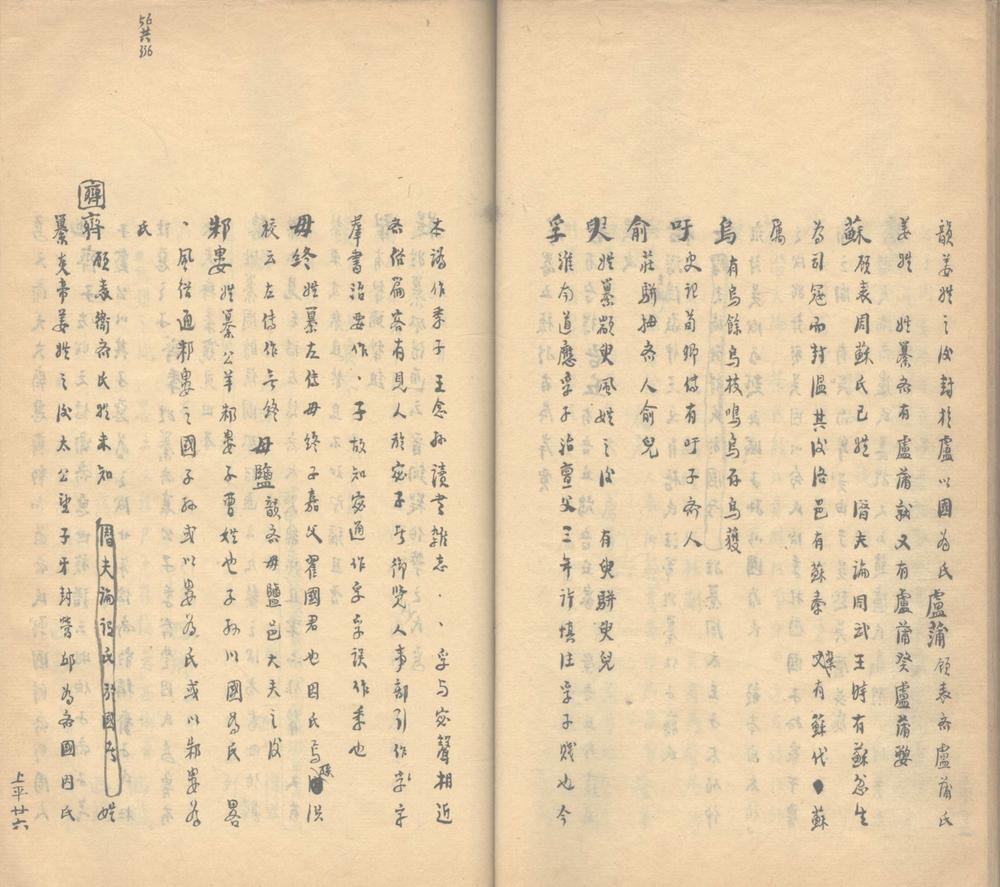 韻姜姓之後封於盧以國為氏 盧蒲 顧表齊盧蒲氏
姜姓 姓纂齊有盧蒲就又有盧蒲癸盧蒲嫳
蘇 顧表周蘇氏己姓 潛夫論周武王時有蘇忿生
為司寇而封溫其後洛邑有蘇秦 又有蘇代 蘇
厲
烏 有烏餘烏枝鳴烏存烏獲
吁 史記荀卿傳有吁子齊人
俞 莊駢拇齊人俞兒
臾 姓纂顓臾風姓之後 有臾駢臾兒
孚 淮南道應孚子治亶父三年許慎注孚子賤也今
本譌作季子王念孫讀書雜志 孚與宓聲相近
齊俗篇客有見人於宓子者御覽人事部引作孚字
羣書治要作 子故知宓通作孚孚誤作季也
毋終 姓纂左傳毋終子嘉父翟國君也因氏焉 洪
校云左傳作無終 毋鹽 韻齊毋鹽邑大夫之後
邾婁 姓纂公羊邾婁子曹姓也子孫以國為氏 畧
風俗通邾婁之國子孫或以婁為氏或以邾婁為
氏
齊 齊 顧表衛齊氏姓未知 潛夫論說氏於國者 姓
纂炎帝姜姓之後太公望子牙封營邱為齊國因氏
上平廿六
56共336